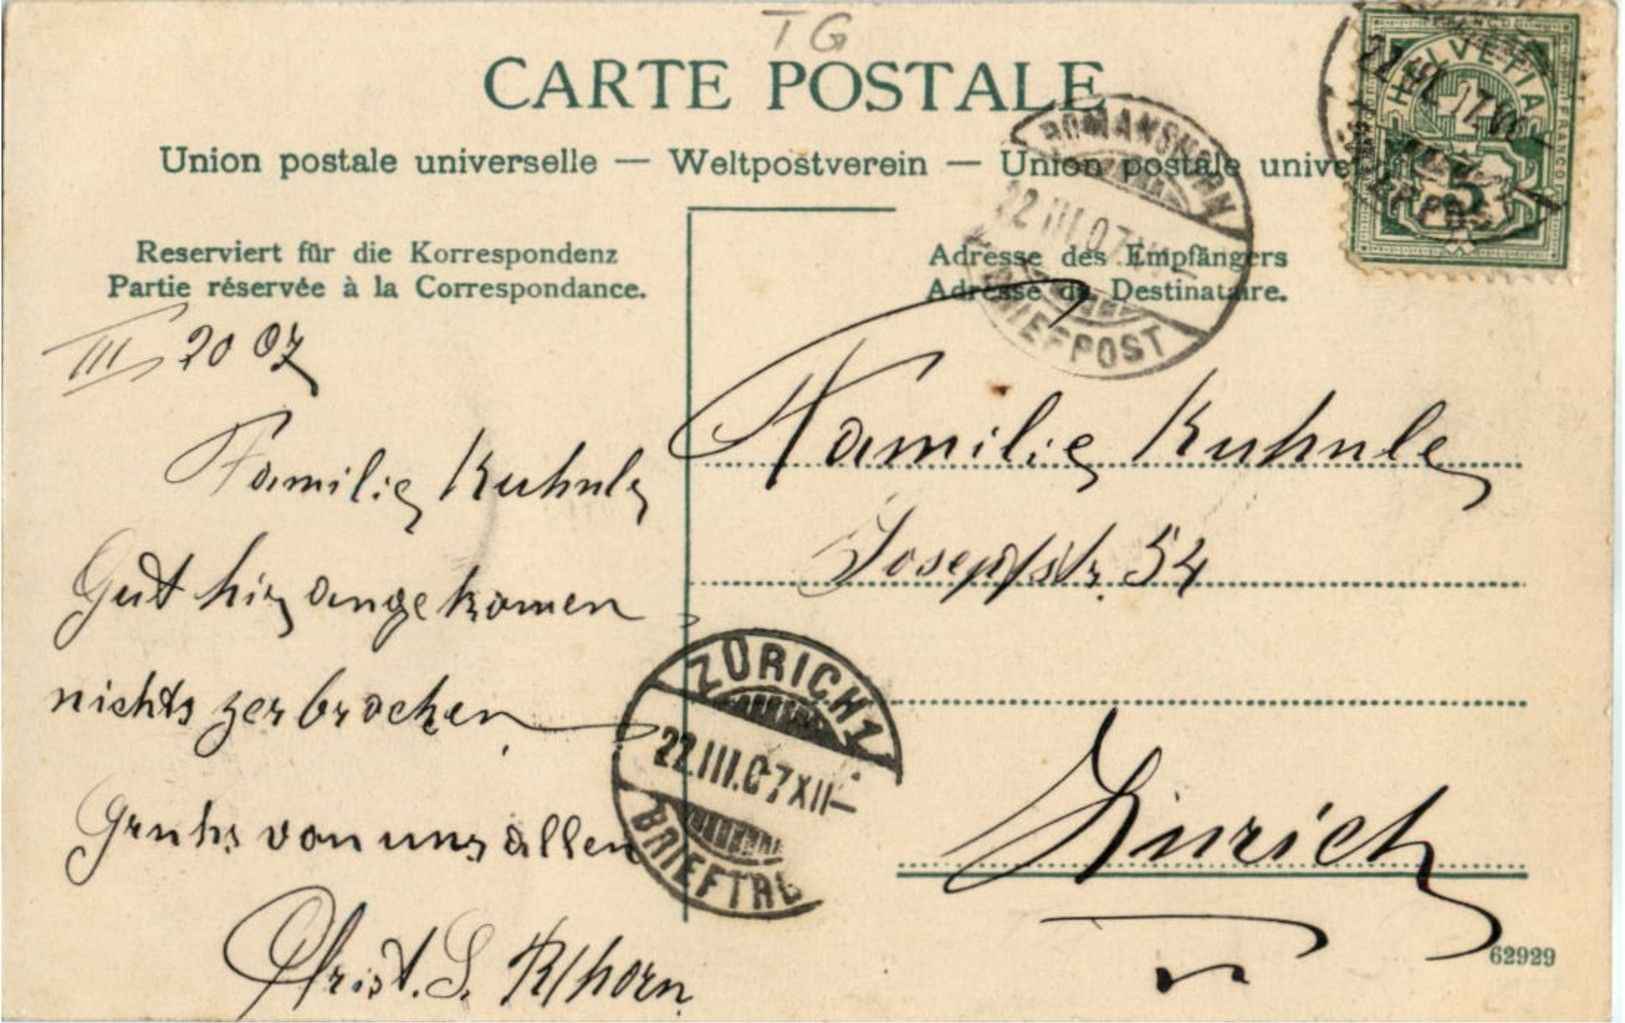 TG
CARTE POSTALE
Union postale universelle — Weltpostverein — Union postale unive
HELVETIA
FRANCO
5
ROMANSHORN
22.III.07
BRIEFPOST
Reserviert für die Korrespondenz
Partie réservée à la Correspondance.
Adresse des Empfängers
Adresse du Destinataire.
III 20 07
Familie Kuhnle
Gut hir angekomen
nichts zerbrochen
Gruhs von uns allen
Christ. S. R/horn
Familie Kuhnle
Josephstr. 54
Zürich
ZÜRICH 1
22.III.07 XII—
BRIEFTRG
62929